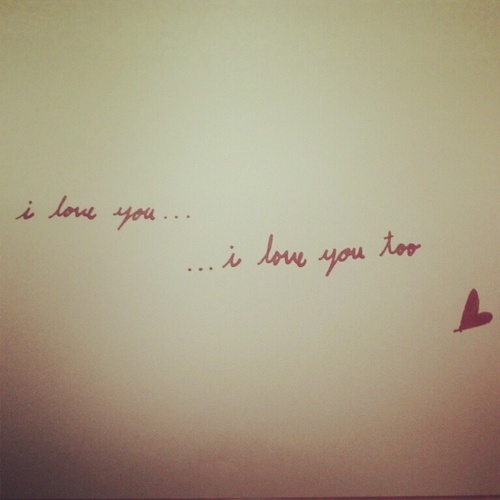 i love you...
...i love you too